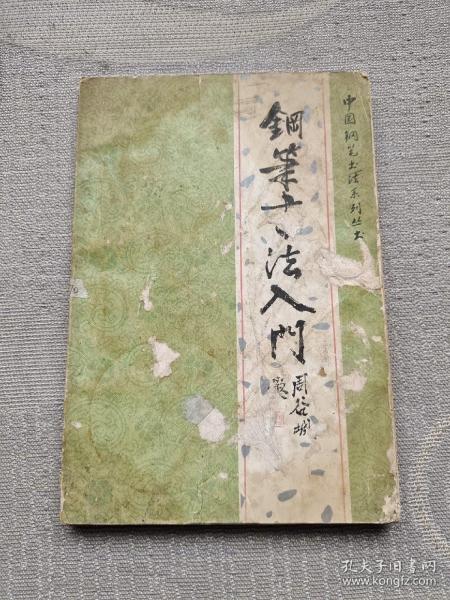 中国钢笔书法系列丛书
鋼筆书法入門
周谷城
題
孔夫子旧书网
www.kongfz.com